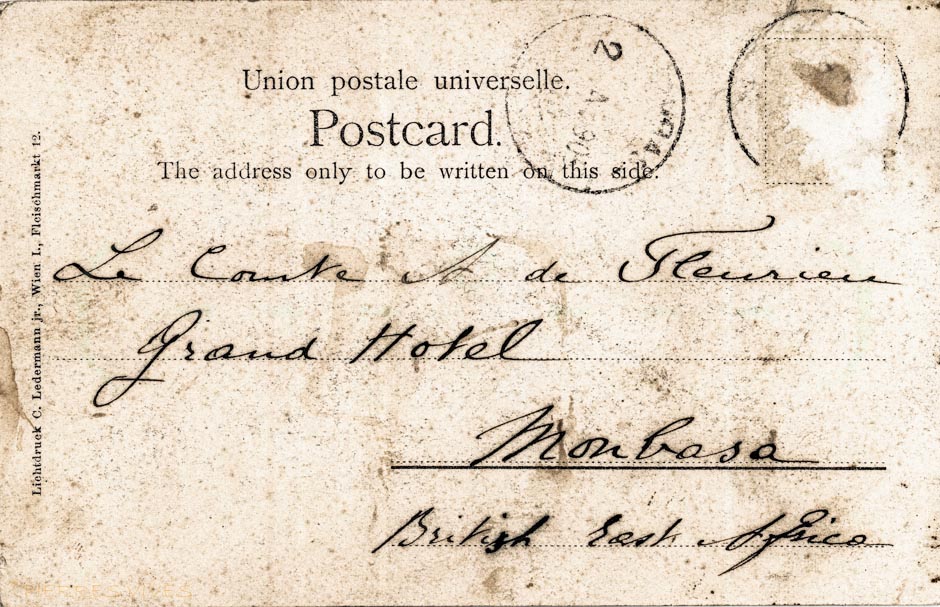 Union postale universelle.
Postcard.
The address only to be written on this side.
Le Comte A de Fleurieu
Grand Hotel
Monbasa
British East Africa
Lichtdruck C. Ledermann jr., Wien I., Fleischmarkt 12.
2